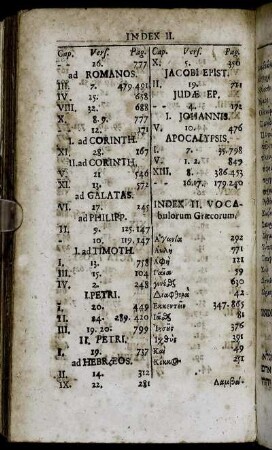 INDEX II.
Cap. Vers. Pag.
- - 26. 777
ad ROMANOS.
III. 7. 479.491
IV. 25. 658
VIII. 32. 688
X. 8.9. 777
- - 12. 171
I. ad CORINTH.
XI. 28. 167
II. ad CORINTH.
V. 21 546
XI. 13. 572
ad GALATAS.
VI. 17. 245
ad PHILIPP.
II. 9. 125.147
- 10. 119.147
I. ad TIMOTH.
I. 13. 758
III. 15. 104
IV. 2. 248
I. PETRI.
I. 20. 449
II. 24. 289.420
III. 19. 20. 799
II. PETRI.
I. 19. 737
ad HEBRÆOS.
II. 14. 312
IX. 22. 281
Cap. Vers. Pag.
X. 5. 456
JACOBI EPIST.
II. 19. 711
JUDÆ EP.
- 4. 172
I. JOHANNIS.
V. 10. 476
APOCALYPSIS.
I. 35.798
V. 1. 2. 849
XIII. 8. 386.453
- - 16.17. 179.240
INDEX II. VOCA-
bulorum Græcorum.
Ἀγωνία 292
Αὐλὴ 771
Ἀφὴ 121
59
630
Διαφθορὰ 42
347.865
81
Ἰησοῦς 376
Ἰχθὺς 291
Καὶ 49
251
Λαμβά-